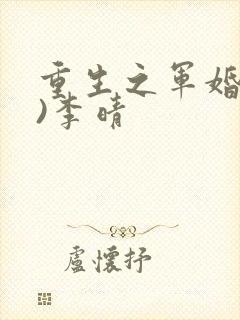 重生之军婚
)李晴
卢怀抒